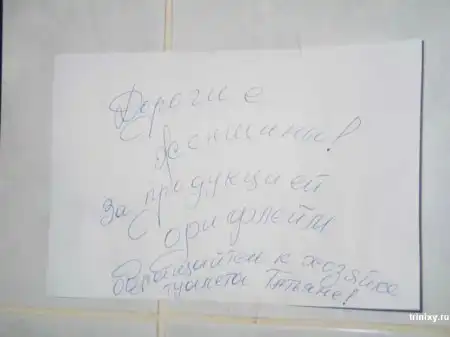 Дорогие
женщины!
За продукцией
орифлейм
обращайтесь к хозяйке
туалета Татьяне!
trinixy.ru